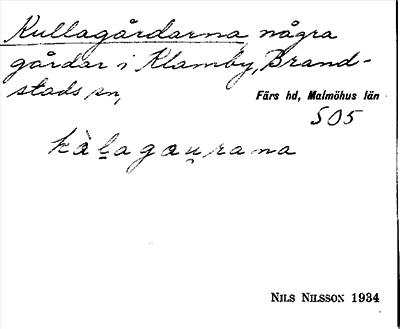 Kullagårdarna några
gårdar i Klamby, Brand-
stads sn,
Färs hd, Malmöhus län
505
kàḻagau̠rana
NILS NILSSON 1934